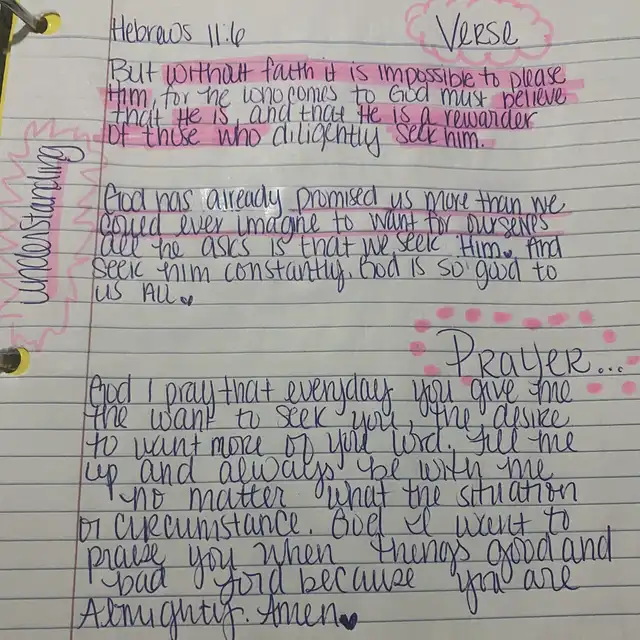 Hebrews 11:6
Verse
But without faith it is impossible to please
Him, for he who comes to God must believe
that He is, and that He is a rewarder
of those who diligently seek him.
understanding
God has already promised us more than we
could ever imagine to want for ourselves
all he asks is that we seek Him. And
seek him constantly. God is so good to
us All.
Prayer...
God I pray that everyday you give me
the want to seek you, the desire
to want more of you lord. fill me
up and always be with me
no matter what the situation
or circumstance. God I want to
praise you when things good and
bad lord because you are
Almighty. Amen